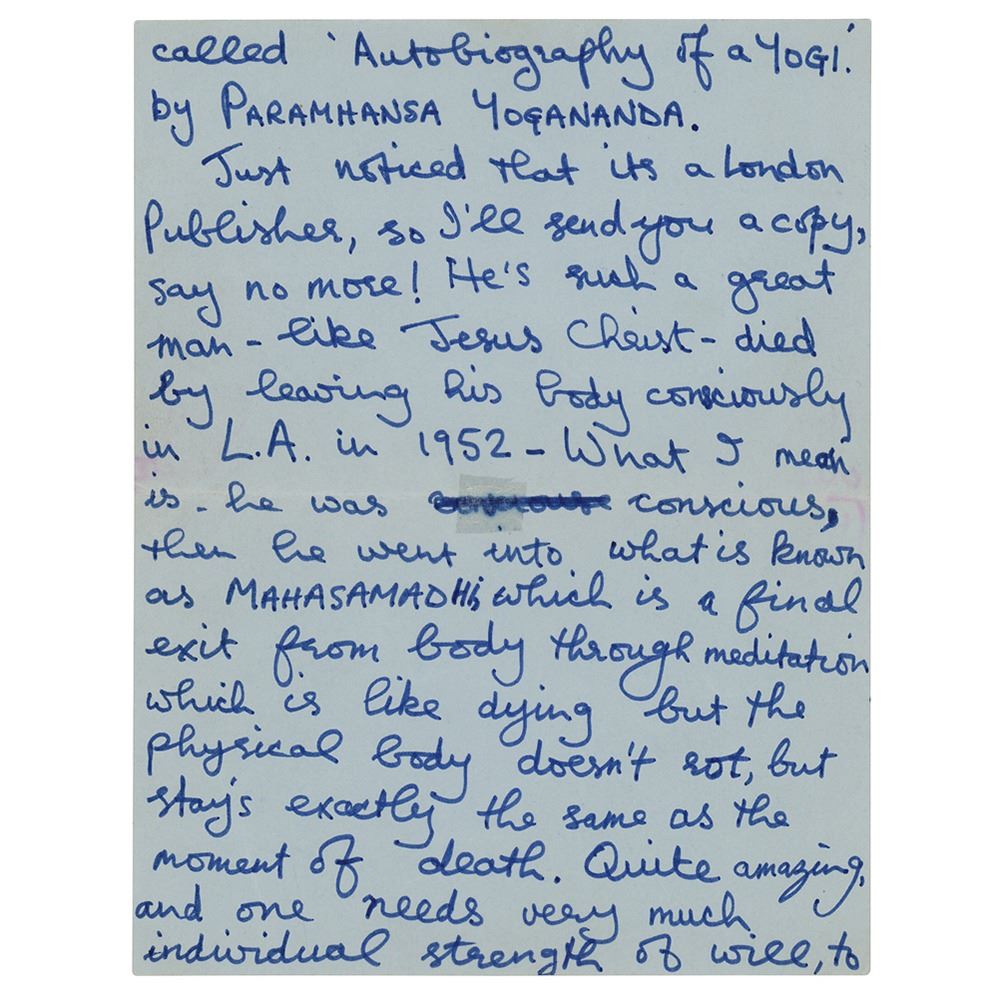 called 'Autobiography of a YOGI'.
by PARAMHANSA YOGANANDA.
Just noticed that its a London
Publisher, so I'll send you a copy,
say no more! He's such a great
man - like Jesus Christ - died
by leaving his body consciously
in L.A. in 1952 - What I mean
is - he was conscious,
then he went into what is known
as MAHASAMADHI, which is a final
exit from body through meditation
which is like dying but the
physical body doesn't rot, but
stay's exactly the same as the
moment of death. Quite amazing,
and one needs very much
individual strength of will, to